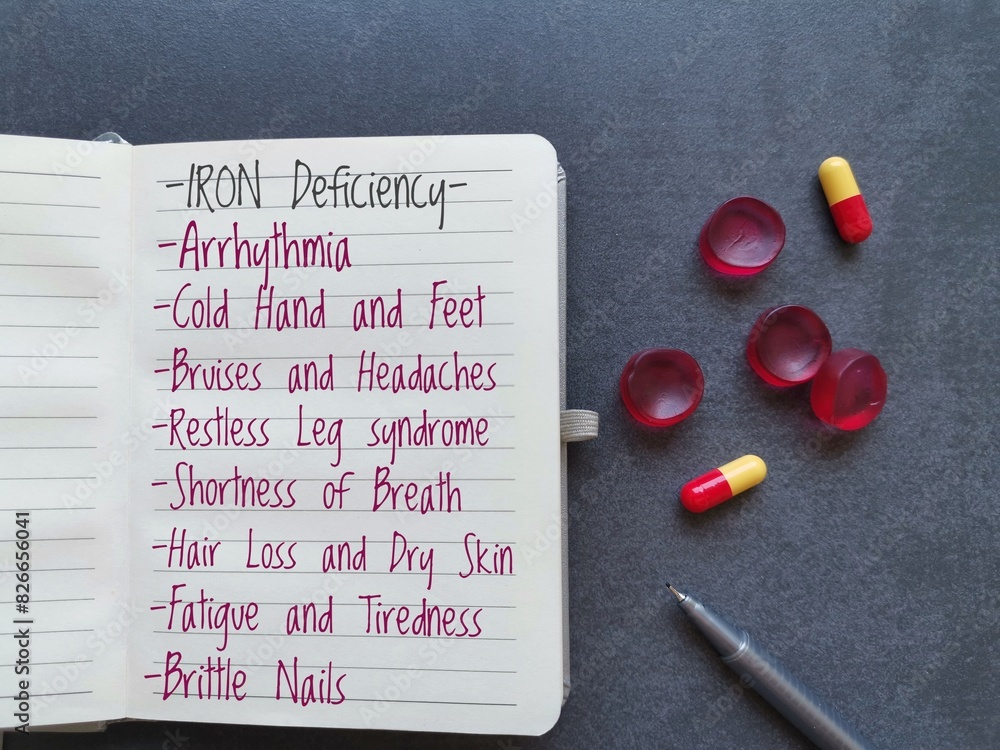 -IRON Deficiency-
-Arrhythmia
-Cold Hand and Feet
-Bruises and Headaches
-Restless Leg syndrome
-Shortness of Breath
-Hair Loss and Dry Skin
-Fatigue and Tiredness
-Brittle Nails
Adobe Stock | #826656041